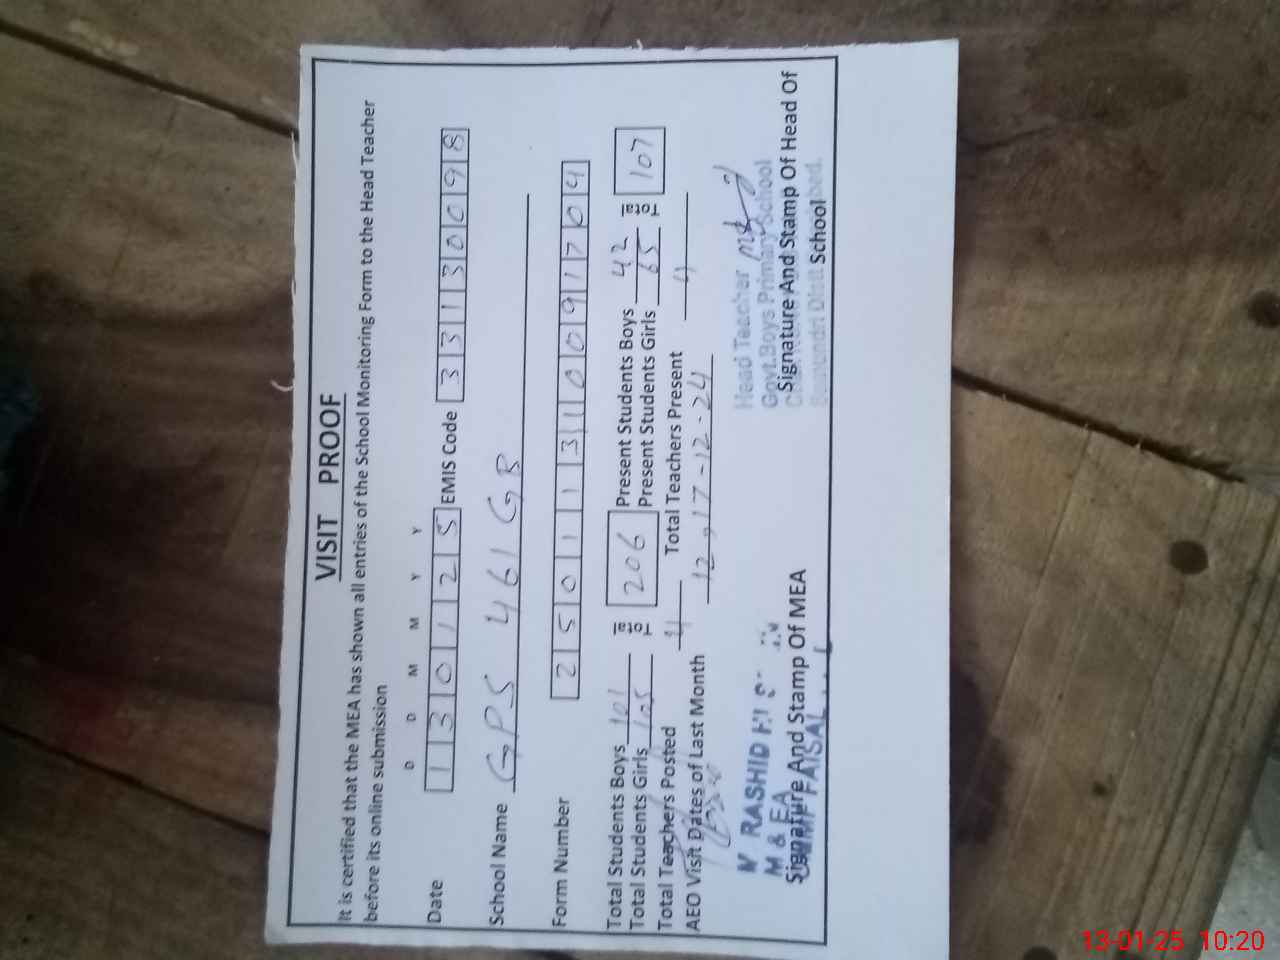 VISIT PROOF
It is certified that the MEA has shown all entries of the School Monitoring Form to the Head Teacher
before its online submission
D D M M Y Y
Date 130125 EMIS Code 33130098
School Name GPS 461 GB
Form Number 25011310091704
Total Students Boys 101 Total 206 Present Students Boys 42 Total 107
Total Students Girls 105 Present Students Girls 65
Total Teachers Posted 4 Total Teachers Present 4
AEO Visit Dates of Last Month 12, 17-12-24
M RASHID
M & EA
Signature And Stamp Of MEA
FAISAL
Head Teacher
Govt.Boys Primary School
Signature And Stamp Of Head Of
School
13-01-25 10:20